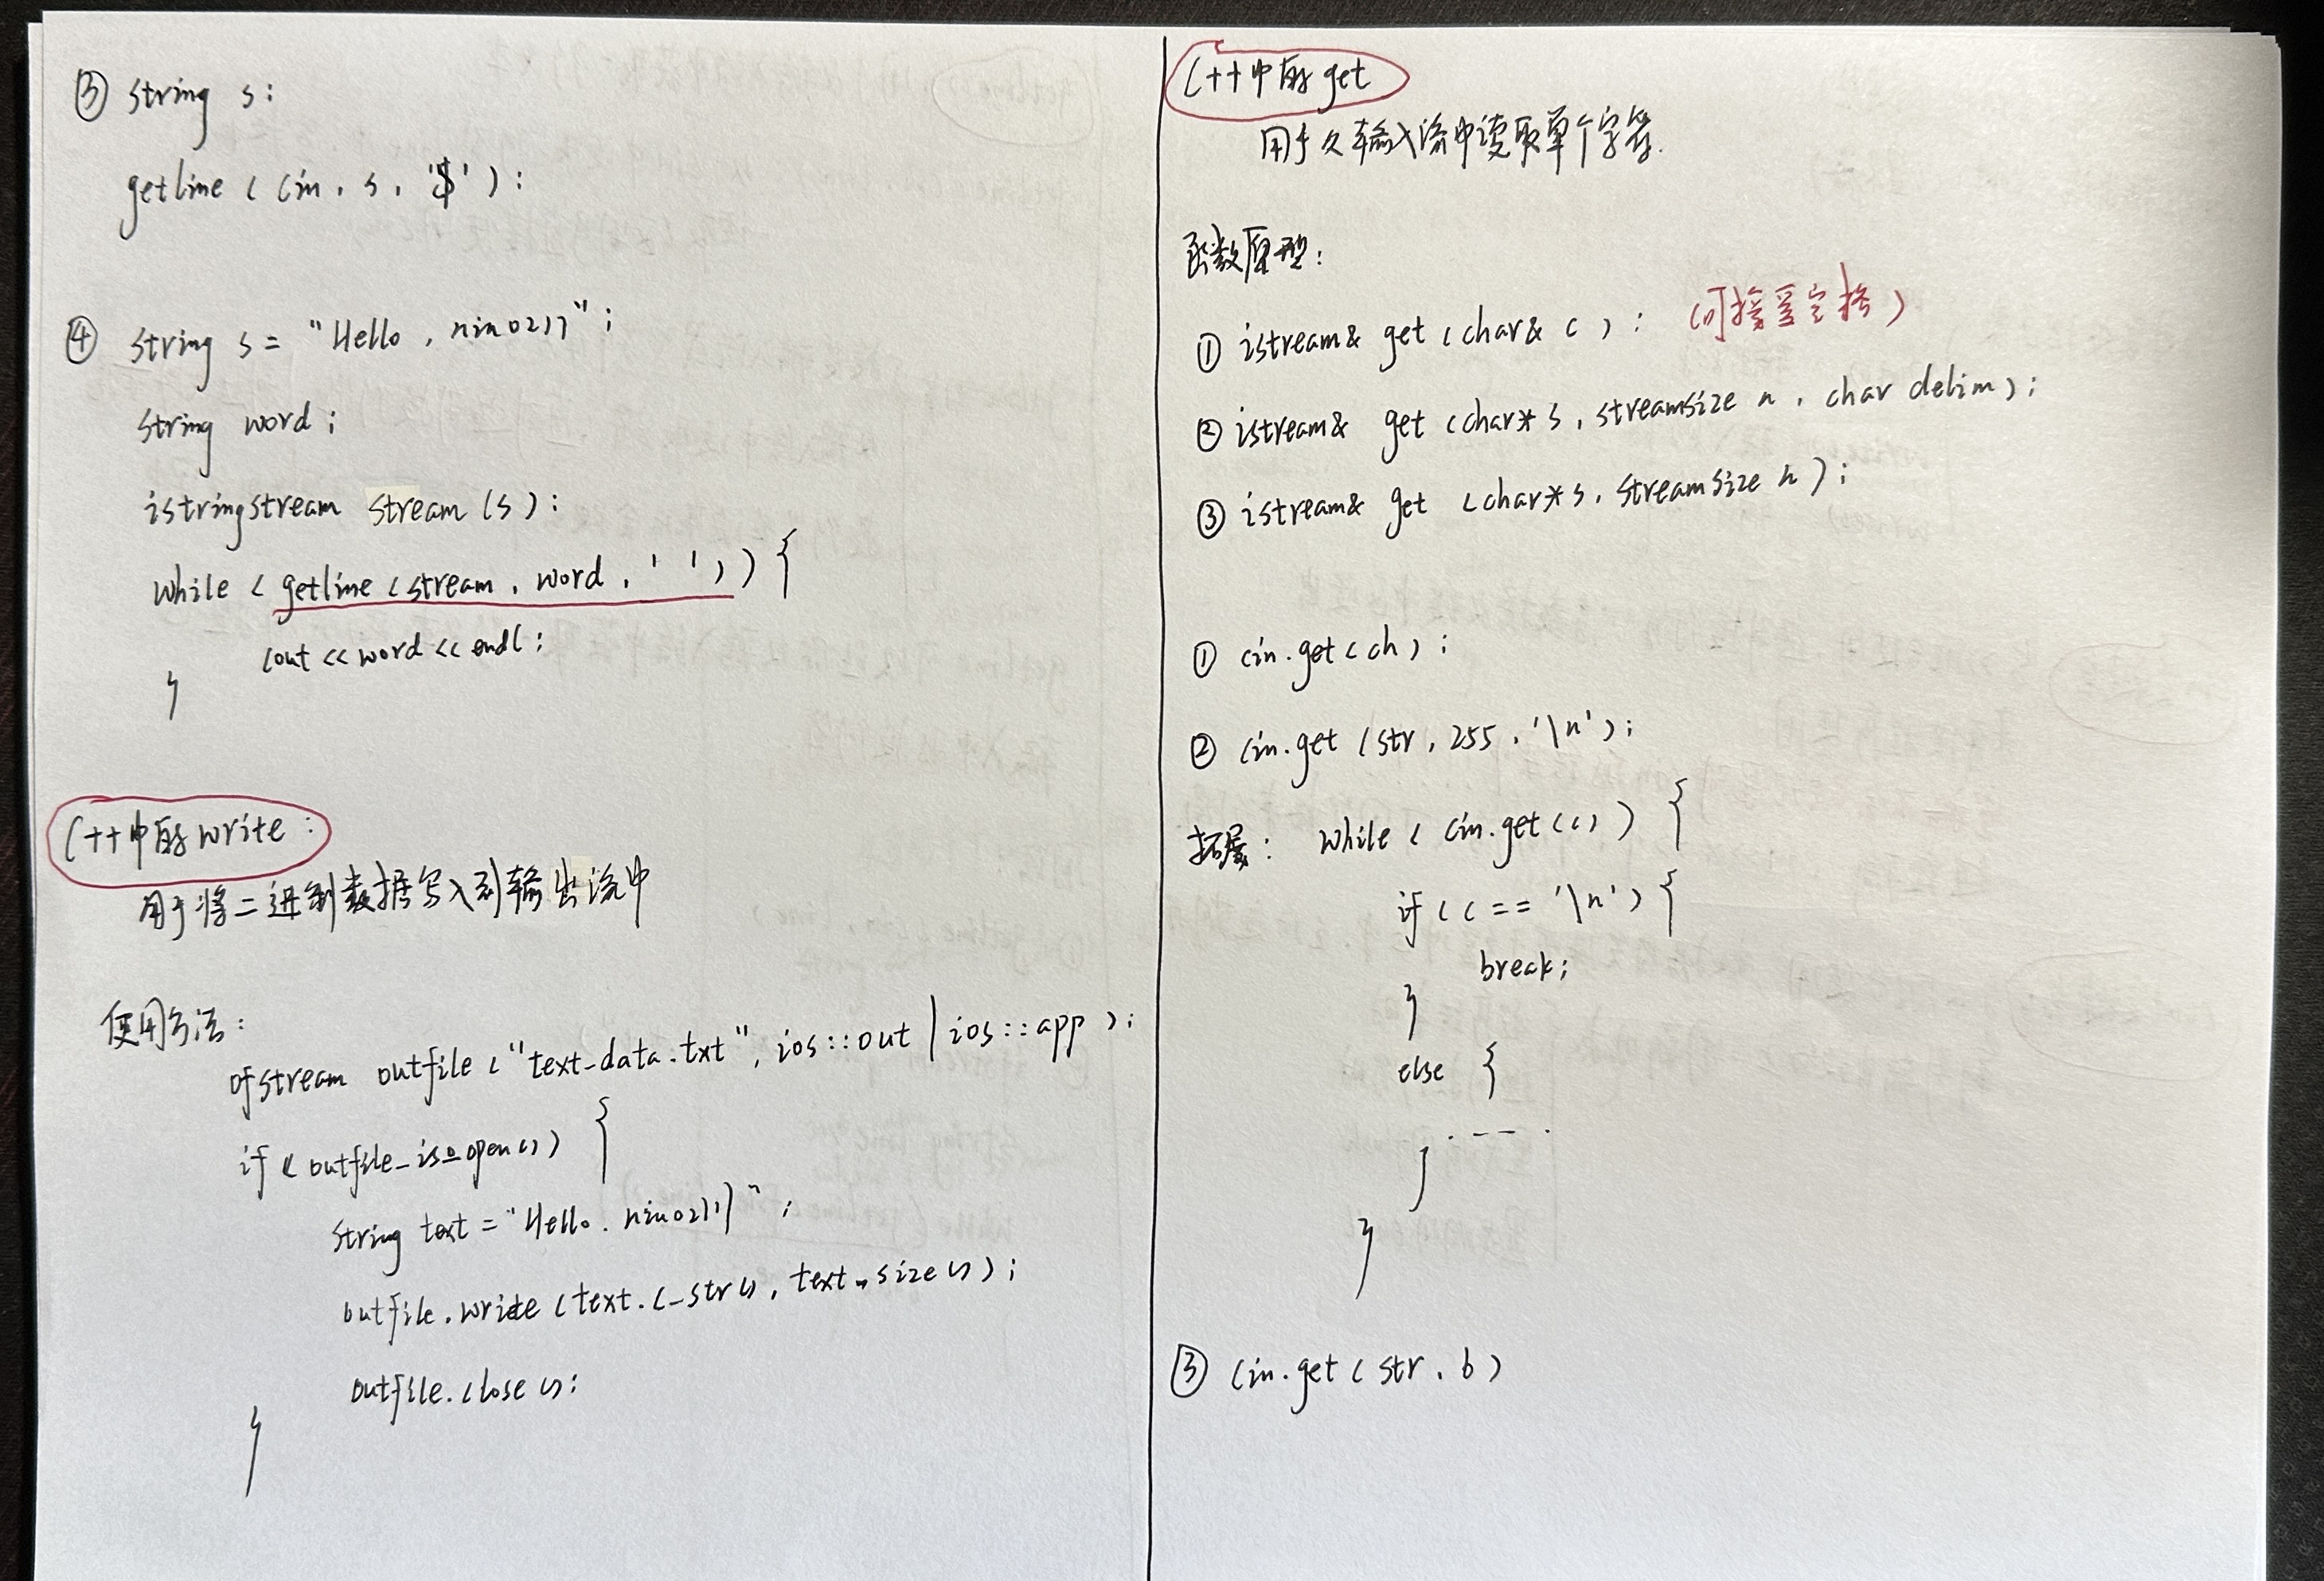 ③ string s;
getline (cin, s, '$');
④ string s = "Hello, nino211";
string word;
istringstream stream (s);
while (getline (stream, word, ' ')) {
cout << word << endl;
}
C++中的write:
用于将二进制数据写入到输出流中
使用方法:
ofstream outfile ("text_data.txt", ios::out | ios::app);
if (outfile_is_open()) {
string text = "Hello. nino211";
outfile.write (text.c_str(), text.size());
outfile.close();
}
C++中的get
用于从输入流中读取单个字符.
函数原型:
① istream& get (char& c); (可接受空格)
② istream& get (char* s, streamsize n, char delim);
③ istream& get (char* s, streamsize n);
① cin.get(ch);
② cin.get (str, 255, '\n');
拓展: while (cin.get(c)) {
if (c == '\n') {
break;
}
else {
.....
}
}
③ cin.get (str, b)